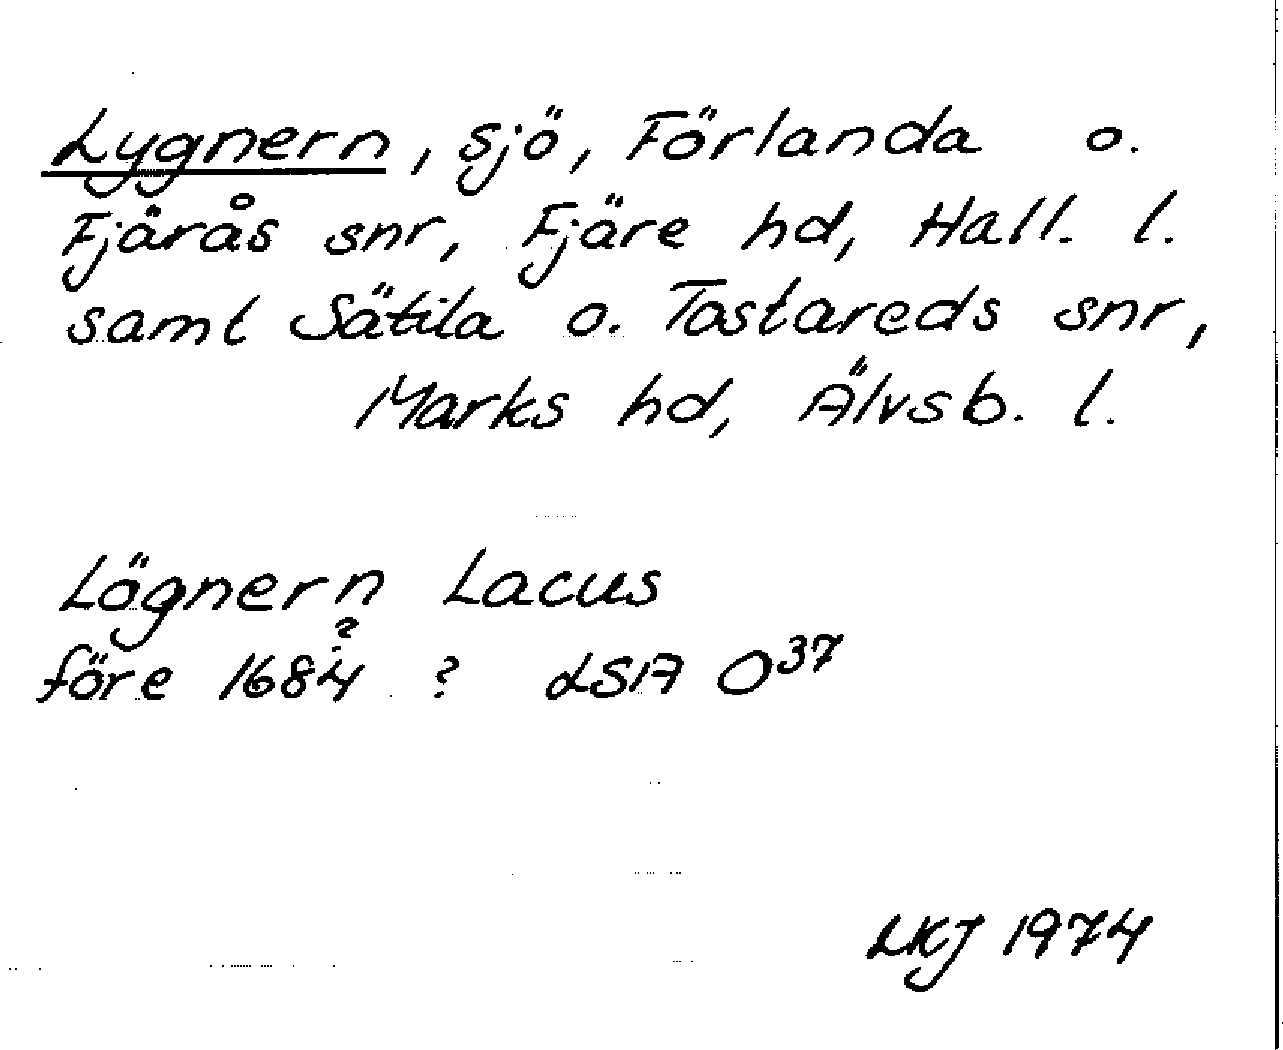 Lygnern, sjö, Förlanda o.
Fjärås snr, Fjäre hd, Hall. l.
samt Sätila o. Tostareds snr,
Marks hd, Älvsb. l.
Lögnern Lacus
?
före 1684 ? LSA O³⁷
LKJ 1974